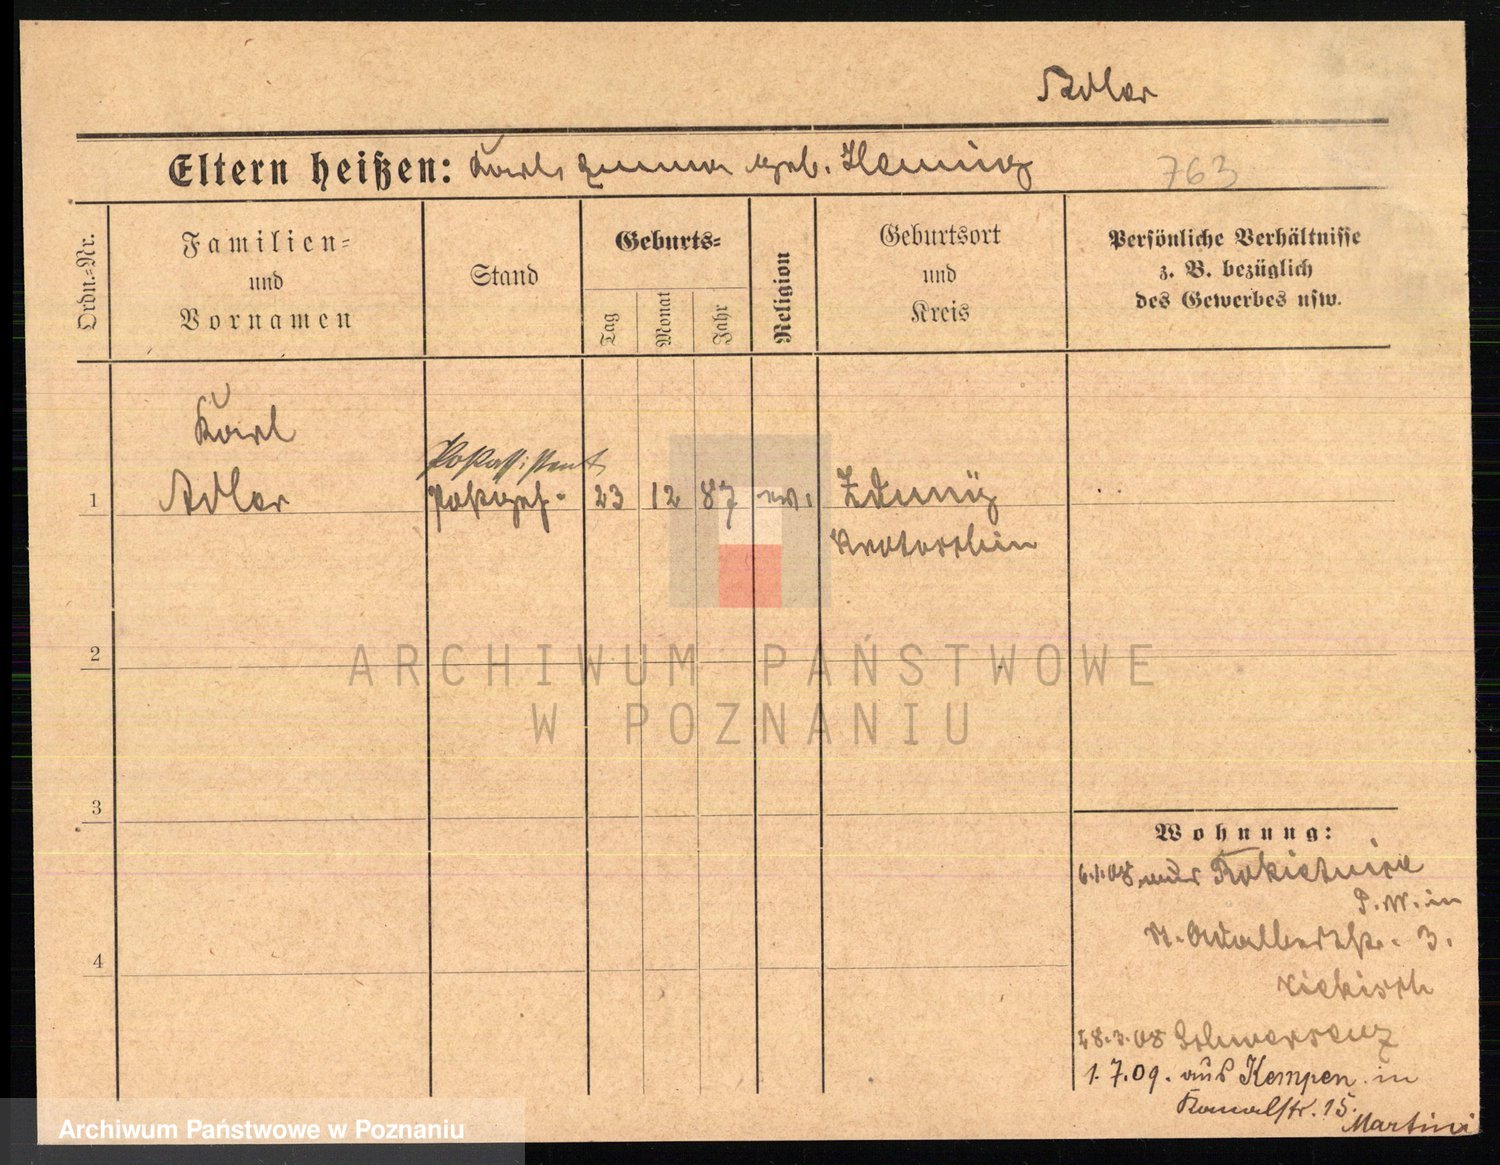 Adler
Eltern heißen: Karl, Emma geb. Hennig
763
Ordn.=Nr.
Familien=
und
Vornamen
Stand
Geburts=
Tag
Monat
Jahr
Religion
Geburtsort
und
Kreis
Persönliche Verhältnisse
z. B. bezüglich
des Gewerbes usw.
1
Karl
Adler
Postassistent
Postgeh.
23
12
87
ev.
Zduny
Krotoschin
2
ARCHIWUM PAŃSTWOWE
W POZNANIU
3
4
Wohnung:
6.1.08 aus Rokietnice
P. W. in
St. Adalbertstr. 3.
28.3.08 Schwersenz
1.7.09. aus Kempen in
Kanalstr. 15.
Martini
Archiwum Państwowe w Poznaniu